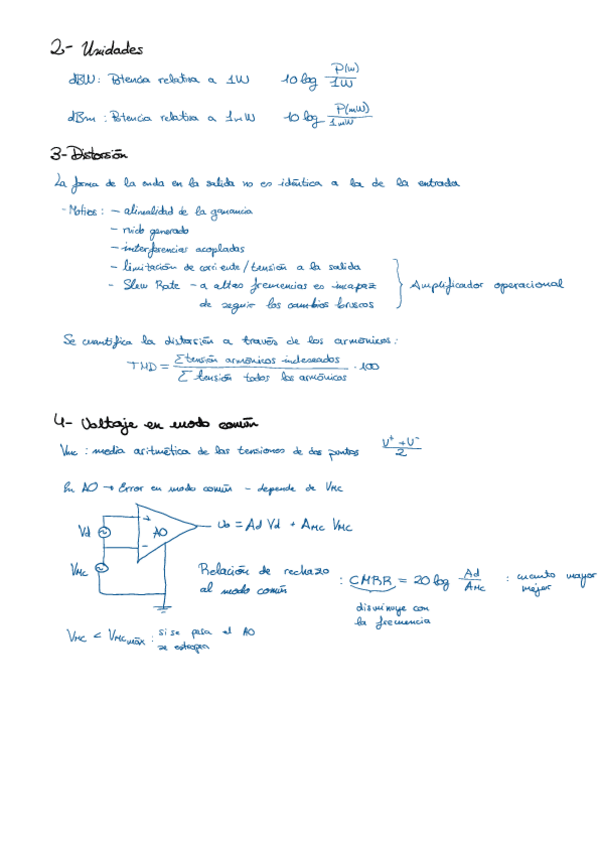 2- Unidades
dBW: Potencia relativa a 1W 10 log P(W)/1W
dBm: Potencia relativa a 1mW 10 log P(mW)/1mW
3- Distorsión
La forma de la onda en la salida no es idéntica a la de la entrada
- Motivos: - alinealidad de la ganancia
- ruido generado
- interferencias acopladas
- limitación de corriente/tensión a la salida
- Slew Rate - a altas frecuencias es incapaz } Amplificador operacional
de seguir los cambios bruscos
Se cuantifica la distorsión a través de los armónicos:
THD = Σ tensión armónicos indeseados / Σ tensión todos los armónicos · 100
4- Voltaje en modo común
VMC: media aritmética de las tensiones de dos puntos V⁺ + V⁻ / 2
En AO → Error en modo común - depende de VMC
Vd + - AO Vo = Ad Vd + AMC VMC
VMC
Relación de rechazo : CMRR = 20 log Ad/AMC : cuanto mayor
al modo común mejor
disminuye con
la frecuencia
VMC < VMCmáx : si se pasa el AO
se estropea